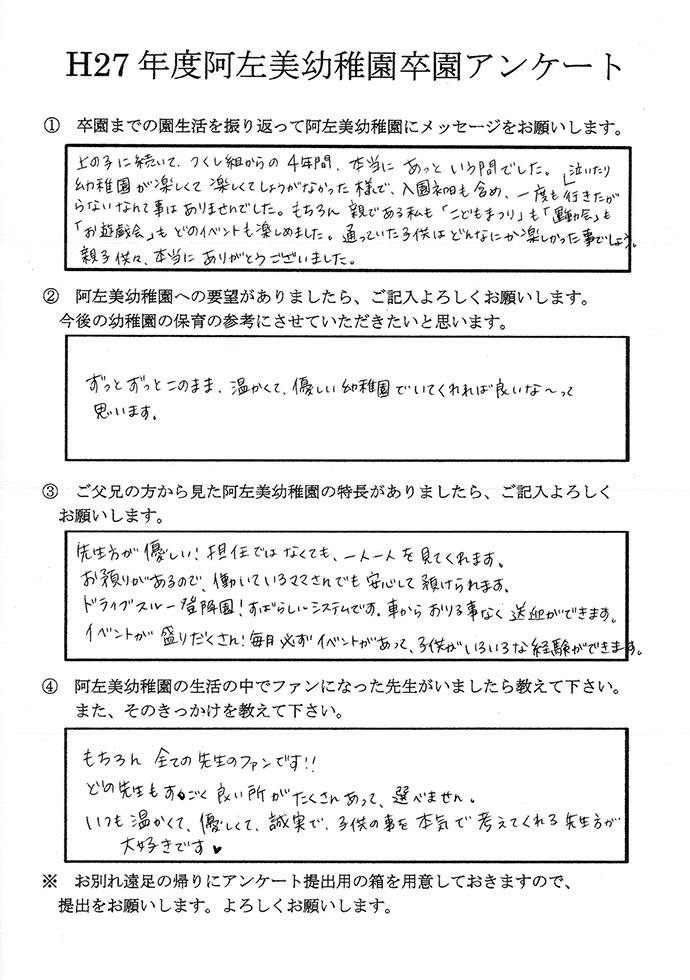 H27 年度阿左美幼稚園卒園アンケート
① 卒園までの園生活を振り返って阿左美幼稚園にメッセージをお願いします。
上の子に続いて、つくし組からの4年間、本当に あっと いう間でした。
幼稚園が楽しくて 楽しくてしょうがなかった様で、入園初日も含め、一度も 泣いたり 行きたが
らないなんて事は ありませんでした。もちろん 親である私も「こどもまつり」も「運動会」も
「お遊戯会」も どのイベントも楽しめました。通っていた子供は どんなにか楽しかった事でしょう。
親子供々、本当に ありがとうございました。
② 阿左美幼稚園への要望がありましたら、ご記入よろしくお願いします。
今後の幼稚園の保育の参考にさせていただきたいと思います。
ずっと ずっと このまま、温かくて、優しい 幼稚園 でいてくれれば 良いな～って
思います。
③ ご父兄の方から見た阿左美幼稚園の特長がありましたら、ご記入よろしく
お願いします。
先生方が 優しい! 担任では なくても、一人一人 を 見てくれます。
お預りがあるので、働いているママさんでも 安心して 預けられます。
ドライブスルー登降園! すばらしいシステムです。車から おりる事なく 送迎ができます。
イベントが 盛りだくさん! 毎月 必ず イベントがあって、子供が いろいろな 経験ができます。
④ 阿左美幼稚園の生活の中でファンになった先生がいましたら教えて下さい。
また、そのきっかけを教えて下さい。
もちろん 全ての先生のファンです!!
どの先生も すごく 良い所が たくさんあって、選べません。
いつも 温かくて、優しくて、誠実で、子供の事を 本気で 考えてくれる 先生方が
大好きです♥
※ お別れ遠足の帰りにアンケート提出用の箱を用意しておきますので、
提出をお願いします。よろしくお願いします。